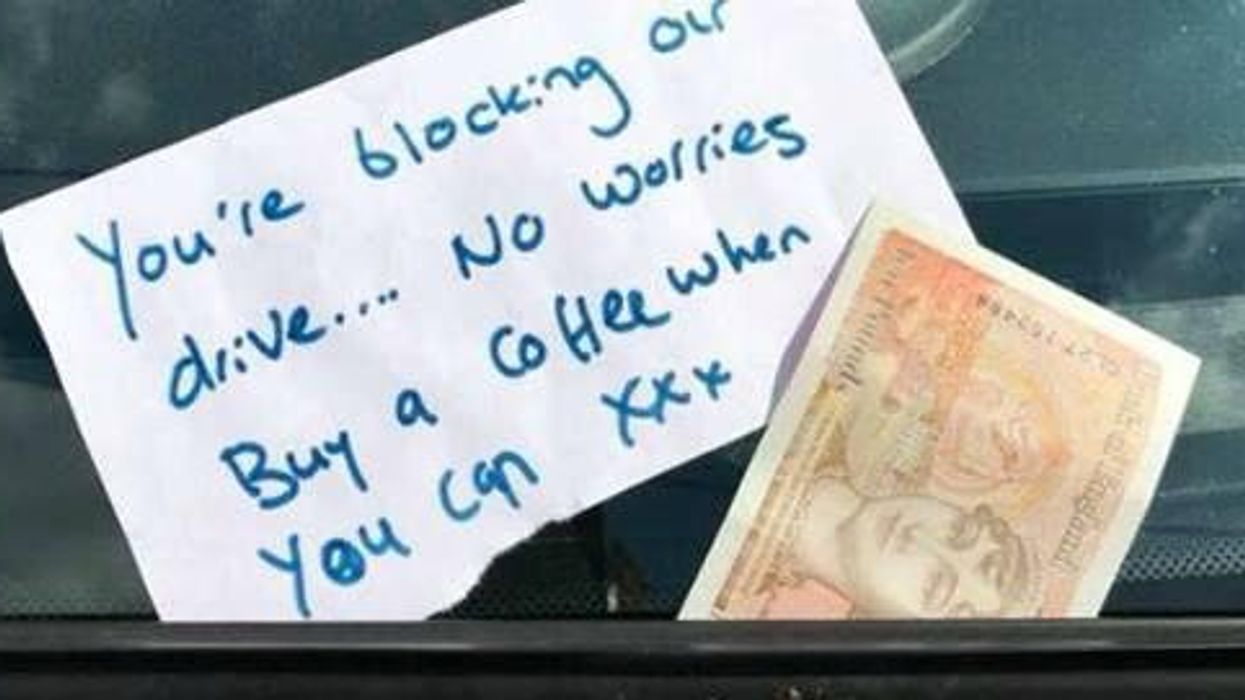 You're blocking our
drive.... No worries
Buy a coffee when
you can xxx
Ten Pounds
Bank of England